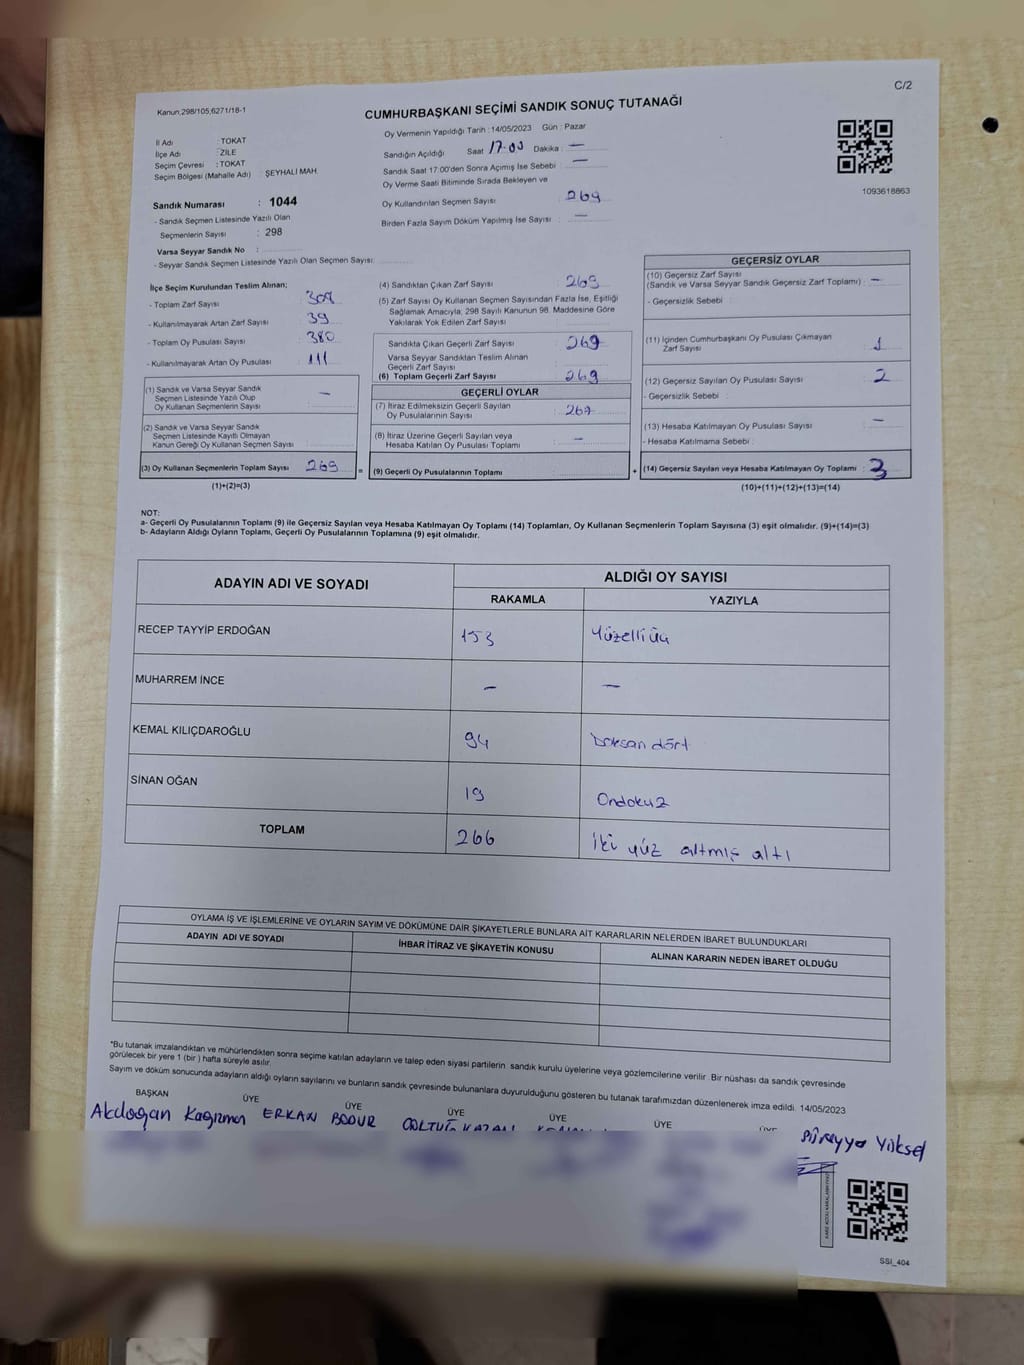 C/2
Kanun;298/105;6271/18-1
CUMHURBAŞKANI SEÇİMİ SANDIK SONUÇ TUTANAĞI
İl Adı : TOKAT
İlçe Adı : ZİLE
Seçim Çevresi : TOKAT
Seçim Bölgesi (Mahalle Adı) : ŞEYHALİ MAH.
Sandık Numarası : 1044
- Sandık Seçmen Listesinde Yazılı Olan
Seçmenlerin Sayısı : 298
Varsa Seyyar Sandık No :
- Seyyar Sandık Seçmen Listesinde Yazılı Olan Seçmen Sayısı:
Oy Vermenin Yapıldığı Tarih : 14/05/2023 Gün : Pazar
Sandığın Açıldığı Saat 17.00 Dakika : —
Sandık Saat 17:00'den Sonra Açımış İse Sebebi : —
Oy Verme Saati Bitiminde Sırada Bekleyen ve
Oy Kullandırılan Seçmen Sayısı : 269
Birden Fazla Sayım Döküm Yapılmış İse Sayısı : —
1093618863
İlçe Seçim Kurulundan Teslim Alınan;
- Toplam Zarf Sayısı : 308
- Kullanılmayarak Artan Zarf Sayısı : 39
- Toplam Oy Pusulası Sayısı : 380
- Kullanılmayarak Artan Oy Pusulası : 111
(1) Sandık ve Varsa Seyyar Sandık
Seçmen Listesinde Yazılı Olup
Oy Kullanan Seçmenlerin Sayısı : —
(2) Sandık ve Varsa Seyyar Sandık
Seçmen Listesinde Kayıtlı Olmayan
Kanun Gereği Oy Kullanan Seçmen Sayısı :
(3) Oy Kullanan Seçmenlerin Toplam Sayısı : 269
(1)+(2)=(3)
(4) Sandıktan Çıkan Zarf Sayısı : 269
(5) Zarf Sayısı Oy Kullanan Seçmen Sayısından Fazla İse, Eşitliği
Sağlamak Amacıyla; 298 Sayılı Kanunun 98. Maddesine Göre
Yakılarak Yok Edilen Zarf Sayısı :
Sandıkta Çıkan Geçerli Zarf Sayısı : 269
Varsa Seyyar Sandıktan Teslim Alınan
Geçerli Zarf Sayısı :
(6) Toplam Geçerli Zarf Sayısı : 269
GEÇERLİ OYLAR
(7) İtiraz Edilmeksizin Geçerli Sayılan
Oy Pusulalarının Sayısı : 267
(8) İtiraz Üzerine Geçerli Sayılan veya
Hesaba Katılan Oy Pusulası Toplamı : —
= (9) Geçerli Oy Pusulalarının Toplamı
GEÇERSİZ OYLAR
(10) Geçersiz Zarf Sayısı
(Sandık ve Varsa Seyyar Sandık Geçersiz Zarf Toplamı) : —
- Geçersizlik Sebebi :
(11) İçinden Cumhurbaşkanı Oy Pusulası Çıkmayan
Zarf Sayısı : 1
(12) Geçersiz Sayılan Oy Pusulası Sayısı : 2
- Geçersizlik Sebebi :
(13) Hesaba Katılmayan Oy Pusulası Sayısı : —
- Hesaba Katılmama Sebebi :
+ (14) Geçersiz Sayılan veya Hesaba Katılmayan Oy Toplamı : 3
(10)+(11)+(12)+(13)=(14)
NOT:
a- Geçerli Oy Pusulalarının Toplamı (9) ile Geçersiz Sayılan veya Hesaba Katılmayan Oy Toplamı (14) Toplamları, Oy Kullanan Seçmenlerin Toplam Sayısına (3) eşit olmalıdır. (9)+(14)=(3)
b- Adayların Aldığı Oyların Toplamı, Geçerli Oy Pusulalarının Toplamına (9) eşit olmalıdır.
ADAYIN ADI VE SOYADI ALDIĞI OY SAYISI
RAKAMLA YAZIYLA
RECEP TAYYİP ERDOĞAN 153 Yüzelliüç
MUHARREM İNCE — —
KEMAL KILIÇDAROĞLU 94 Doksan dört
SİNAN OĞAN 19 Ondokuz
TOPLAM 266 İki yüz altmış altı
OYLAMA İŞ VE İŞLEMLERİNE VE OYLARIN SAYIM VE DÖKÜMÜNE DAİR ŞİKAYETLERLE BUNLARA AİT KARARLARIN NELERDEN İBARET BULUNDUKLARI
ADAYIN ADI VE SOYADI İHBAR İTİRAZ VE ŞİKAYETİN KONUSU ALINAN KARARIN NEDEN İBARET OLDUĞU
*Bu tutanak imzalandıktan ve mühürlendikten sonra seçime katılan adayların ve talep eden siyasi partilerin sandık kurulu üyelerine veya gözlemcilerine verilir. Bir nüshası da sandık çevresinde
görülecek bir yere 1 (bir) hafta süreyle asılır.
Sayım ve döküm sonucunda adayların aldığı oyların sayılarını ve bunların sandık çevresinde bulunanlara duyurulduğunu gösteren bu tutanak tarafımızdan düzenlenerek imza edildi. 14/05/2023
BAŞKAN ÜYE ÜYE ÜYE ÜYE ÜYE ÜYE
Akdoğan Kağızman ERKAN BODUR Süreyya Yüksel
SSI_404